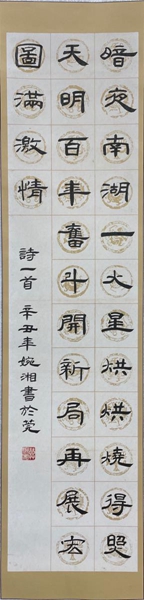 暗夜南湖一火星烘烘燒得照
天明百年奮斗開新局再展宏
圖滿激情
詩一首 辛丑年婉湘書於莞